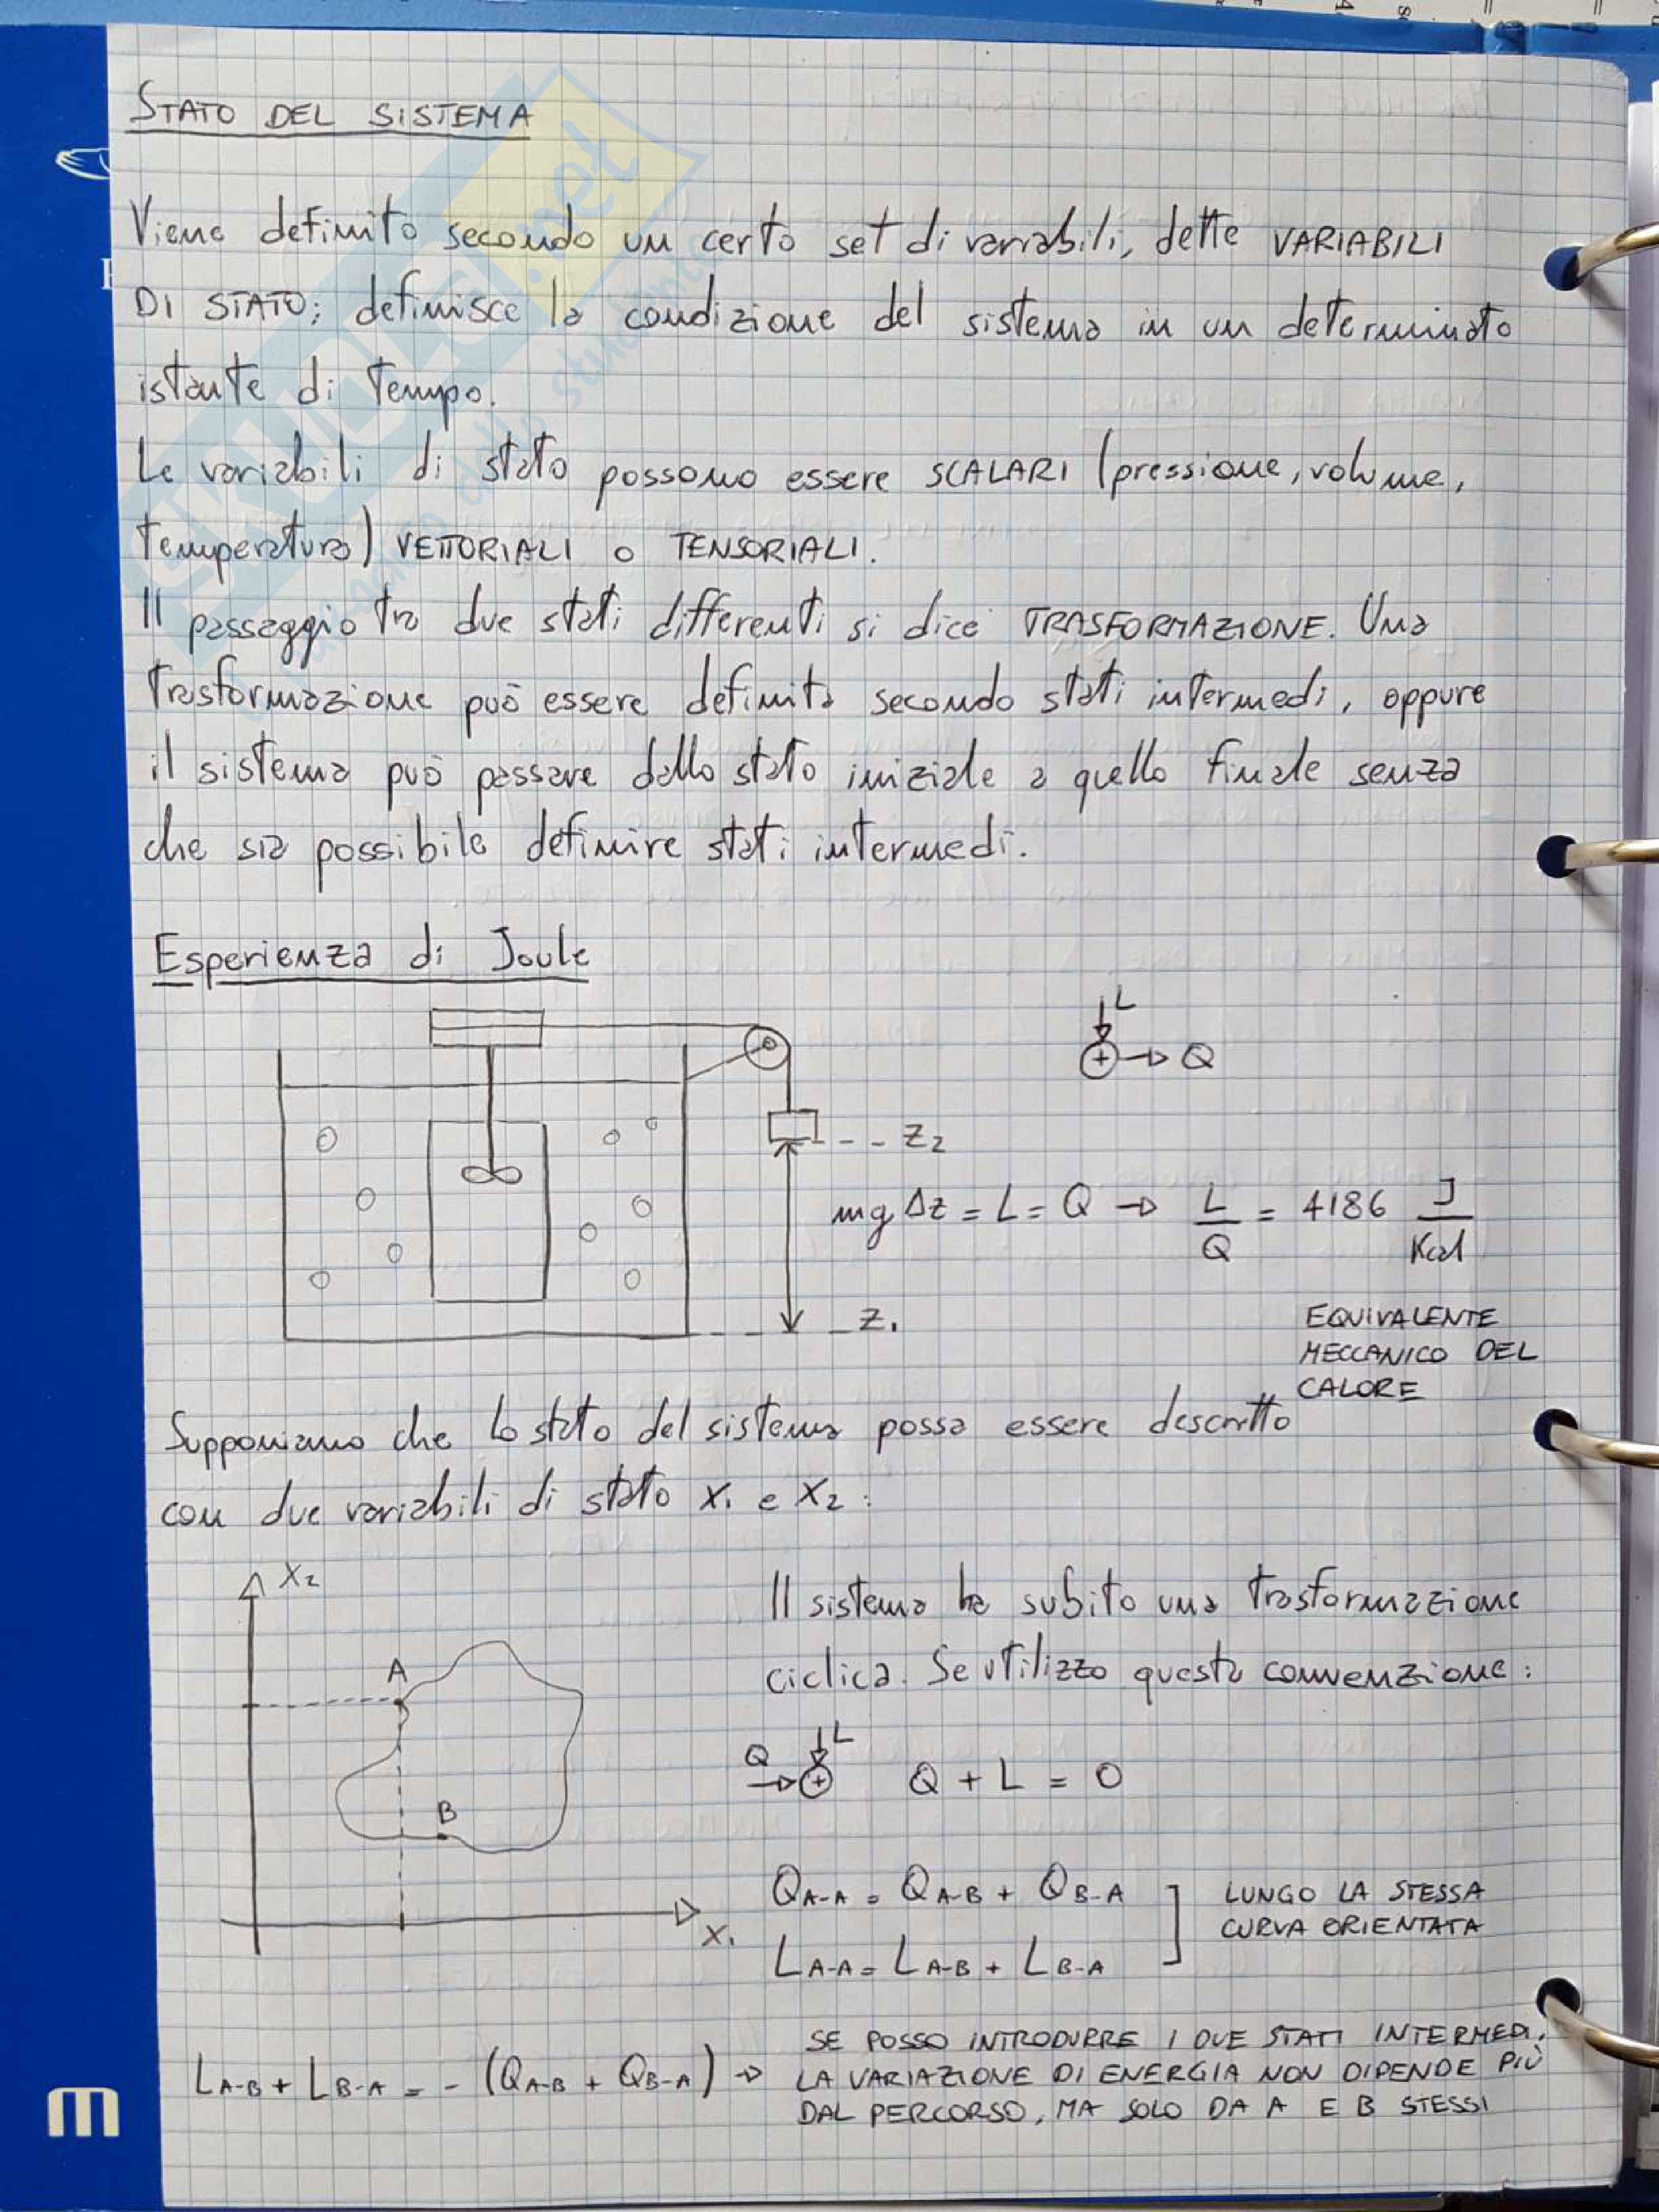 STATO DEL SISTEMA
Viene definito secondo un certo set di variabili, dette VARIABILI
DI STATO; definisce la condizione del sistema in un determinato
istante di tempo.
Le variabili di stato possono essere SCALARI (pressione, volume,
temperatura) VETTORIALI o TENSORIALI.
Il passaggio tra due stati differenti si dice TRASFORMAZIONE. Una
trasformazione può essere definita secondo stati intermedi, oppure
il sistema può passare dallo stato iniziale a quello finale senza
che sia possibile definire stati intermedi.
Esperienza di Joule
L
+ → Q
Z2
mg Δz = L = Q → L/Q = 4186 J/Kcal
Z1
EQUIVALENTE
MECCANICO DEL
CALORE
Supponiamo che lo stato del sistema possa essere descritto
con due variabili di stato X1 e X2:
X2
A
B
X1
Il sistema ha subito una trasformazione
ciclica. Se utilizzo questa convenzione:
Q → + L Q + L = 0
QA-A = QA-B + QB-A
LA-A = LA-B + LB-A
LUNGO LA STESSA
CURVA ORIENTATA
LA-B + LB-A = - (QA-B + QB-A) →
SE POSSO INTRODURRE I DUE STATI INTERMEDI,
LA VARIAZIONE DI ENERGIA NON DIPENDE PIÙ
DAL PERCORSO, MA SOLO DA A E B STESSI
m